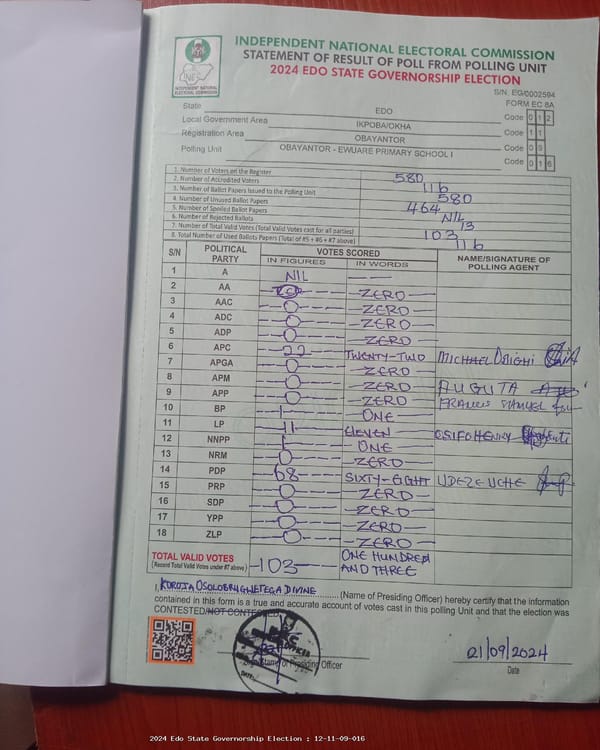 INDEPENDENT NATIONAL ELECTORAL COMMISSION
STATEMENT OF RESULT OF POLL FROM POLLING UNIT
2024 EDO STATE GOVERNORSHIP ELECTION
INEC
INDEPENDENT NATIONAL ELECTORAL COMMISSION
S/N. EG/0002594
FORM EC 8A
State EDO Code 0 1 2
Local Government Area IKPOBA/OKHA Code 1 1
Registration Area OBAYANTOR Code 0 9
Polling Unit OBAYANTOR - EWUARE PRIMARY SCHOOL I Code 0 1 6
1. Number of Voters on the Register 580
2. Number of Accredited Voters 116
3. Number of Ballot Papers Issued to the Polling Unit 580
4. Number of Unused Ballot Papers 464
5. Number of Spoiled Ballot Papers NIL
6. Number of Rejected Ballots 13
7. Number of Total Valid Votes (Total Valid Votes cast for all parties) 103
8. Total Number of Used Ballots Papers (Total of #5 + #6 + #7 above) 116
S/N POLITICAL PARTY VOTES SCORED NAME/SIGNATURE OF POLLING AGENT
IN FIGURES IN WORDS
1 A NIL
2 AA ZERO
3 AAC 0 ZERO
4 ADC 0 ZERO
5 ADP 0 ZERO
6 APC 22 TWENTY-TWO MICHAEL
7 APGA 0 ZERO
8 APM 0 ZERO AUGUTA
9 APP 0 ZERO FRANCIS SAMUEL
10 BP 1 ONE
11 LP 11 ELEVEN OSIFO HENRY
12 NNPP 1 ONE
13 NRM 0 ZERO
14 PDP 68 SIXTY-EIGHT UDEZE UCHE
15 PRP 0 ZERO
16 SDP 0 ZERO
17 YPP 0 ZERO
18 ZLP 0 ZERO
TOTAL VALID VOTES 103 ONE HUNDRED AND THREE
(Record Total Valid Votes under #7 above)
I, (Name of Presiding Officer) hereby certify that the information
contained in this form is a true and accurate account of votes cast in this polling Unit and that the election was
CONTESTED/NOT CONTESTED
Presiding Officer
21/09/2024
Date
2024 Edo State Governorship Election : 12-11-09-016